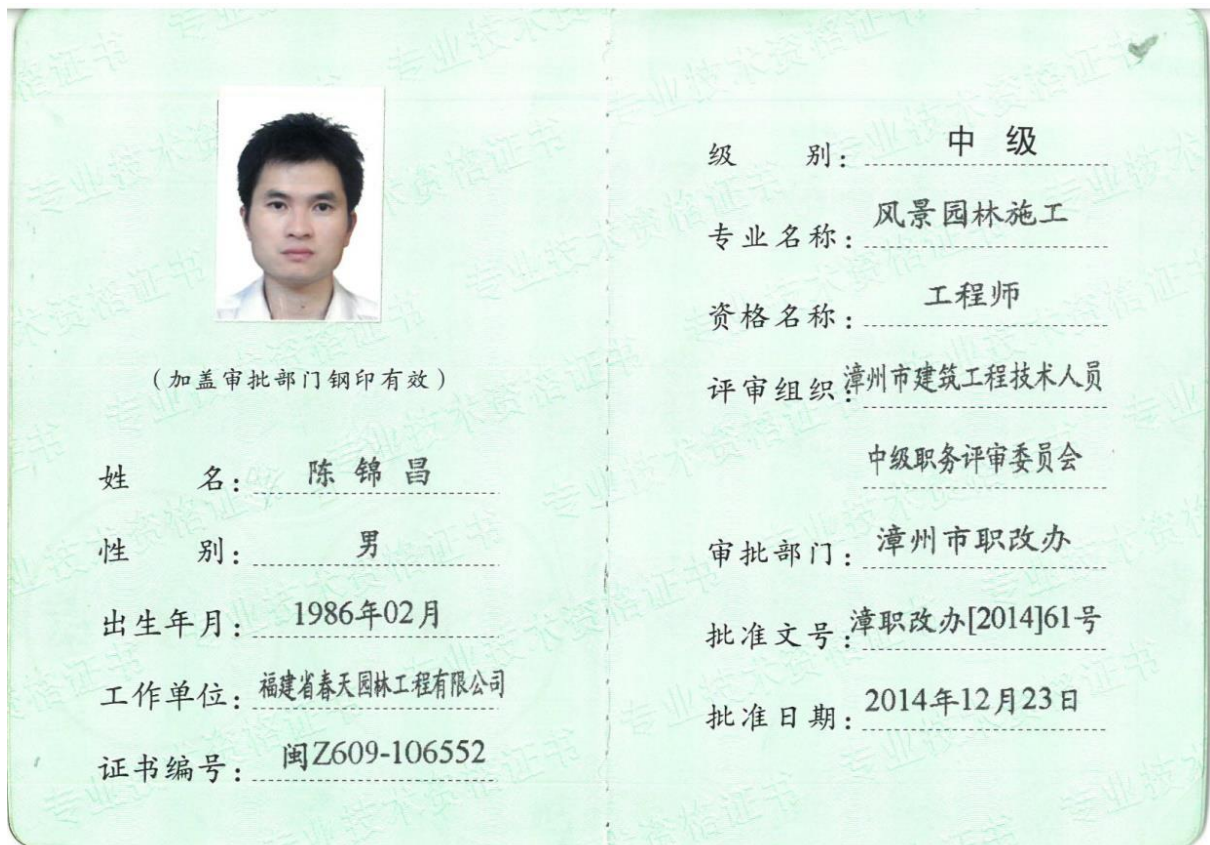 （加盖审批部门钢印有效）
姓 名：陈锦昌
性 别：男
出生年月：1986年02月
工作单位：福建省春天园林工程有限公司
证书编号：闽Z609-106552
级 别：中 级
专业名称：风景园林施工
资格名称：工程师
评审组织：漳州市建筑工程技术人员
中级职务评审委员会
审批部门：漳州市职改办
批准文号：漳职改办[2014]61号
批准日期：2014年12月23日
专业技术资格证书